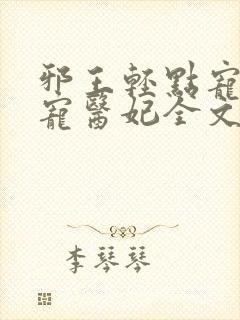 邪王輕點寵
寵醫妃全文
李琴琴